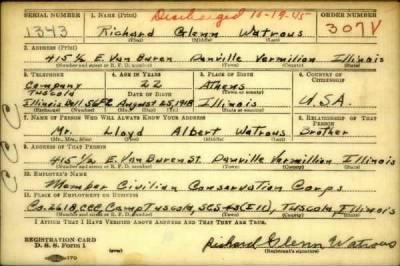 SERIAL NUMBER 1. NAME (Print) Discharged 10-19-45 ORDER NUMBER
1343 Richard Glenn Watrous 307V
(First) (Middle) (Last)
2. ADDRESS (Print)
415 1/2 E. Van Buren Danville Vermilion Illinois
(Number and street or R. F. D. number) (Town) (County) (State)
3. TELEPHONE 4. AGE IN YEARS 5. PLACE OF BIRTH 6. COUNTRY OF CITIZENSHIP
Company 22 Athens
Tuscola DATE OF BIRTH (Town or county) U.S.A.
Illinois Bell 56F2 August 25, 1918 Illinois
(Exchange) (Number) (Mo.) (Day) (Yr.) (State or country)
7. NAME OF PERSON WHO WILL ALWAYS KNOW YOUR ADDRESS 8. RELATIONSHIP OF THAT PERSON
Mr. Lloyd Albert Watrous Brother
(Mr., Mrs., Miss) (First) (Middle) (Last)
9. ADDRESS OF THAT PERSON
415 1/2 E. Van Buren St. Danville Vermillion Illinois
(Number and street or R. F. D. number) (Town) (County) (State)
10. EMPLOYER'S NAME
Member Civilian Conservation Corps
11. PLACE OF EMPLOYMENT OR BUSINESS
Co. 2618, CCC, Camp Tuscola, SCS, Tuscola, Illinois
(Number and street or R. F. D. number) (Town) (County) (State)
I AFFIRM THAT I HAVE VERIFIED ABOVE ANSWERS AND THAT THEY ARE TRUE.
REGISTRATION CARD
D. S. S. Form 1 Richard Glenn Watrous
(Registrant's signature)
CCC